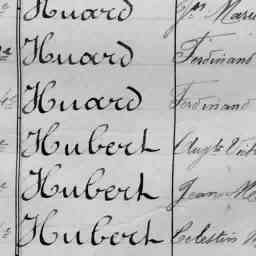 Huard Jn Marie
Huard Ferdinand
Huard Ferdinand
Hubert Augte
Hubert Jean M
Hubert Celestin